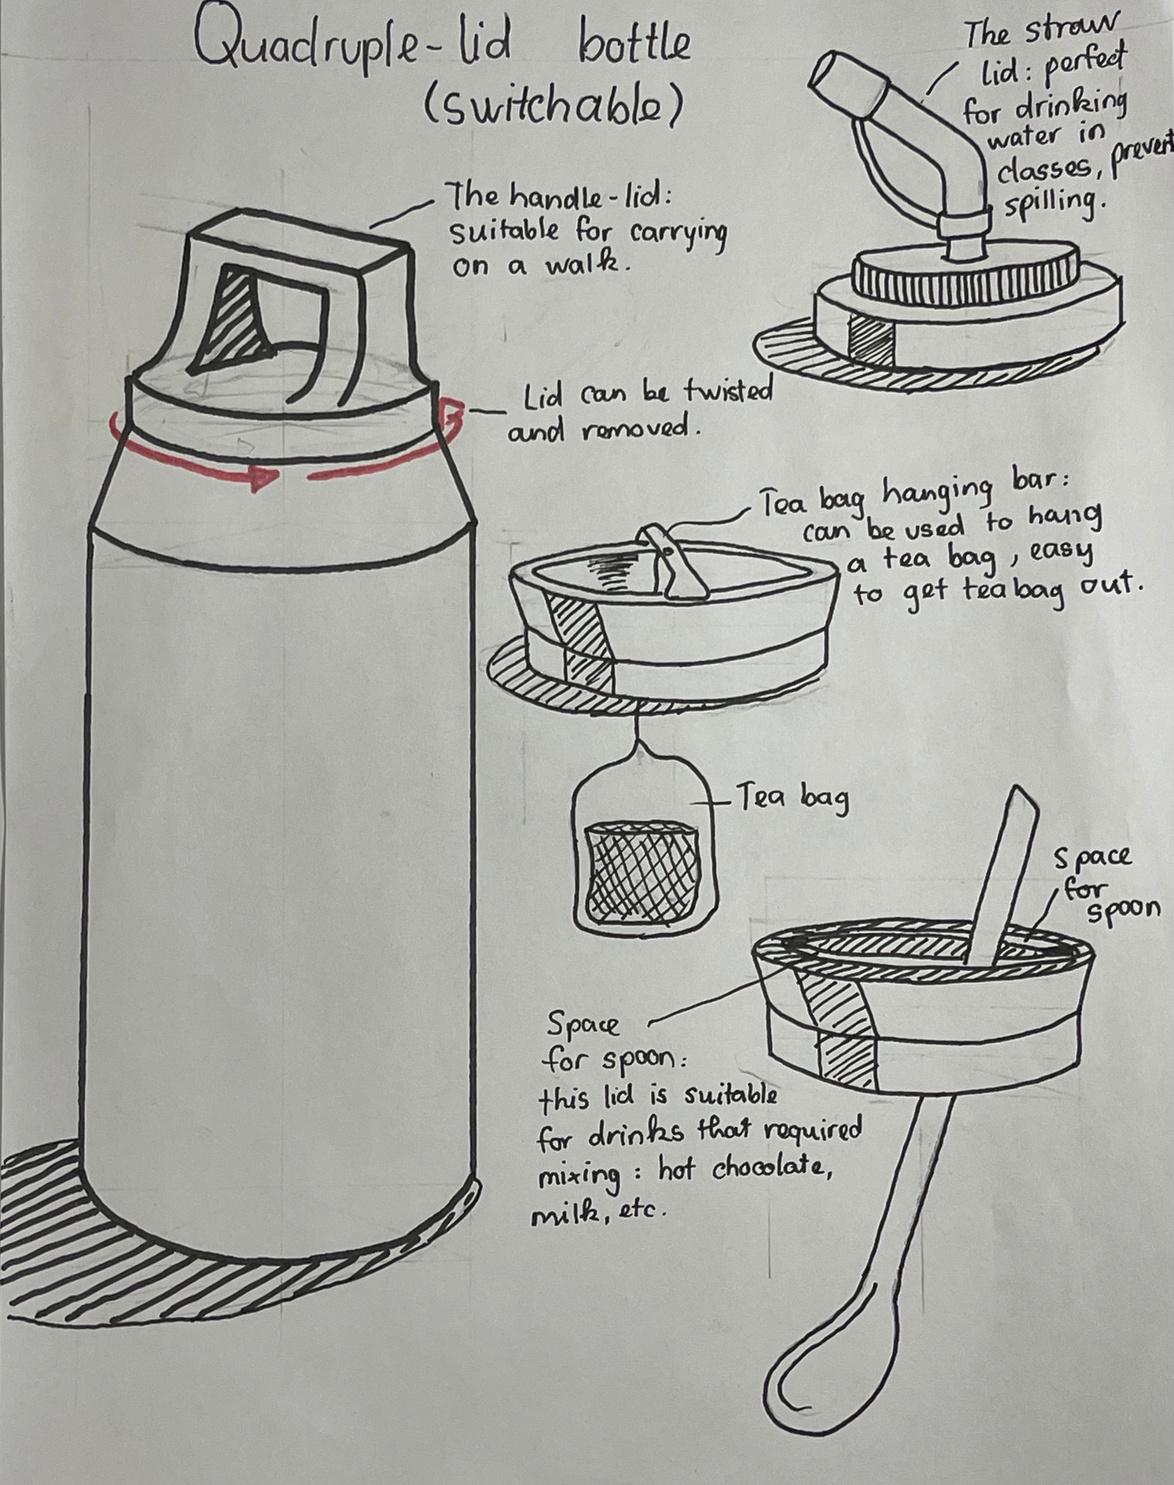 Quadruple-lid bottle
(switchable)
The straw
lid: perfect
for drinking
water in
classes, prevent
spilling.
The handle-lid:
suitable for carrying
on a walk.
Lid can be twisted
and removed.
Tea bag hanging bar:
can be used to hang
a tea bag, easy
to get teabag out.
Tea bag
Space
for
spoon
Space
for spoon:
this lid is suitable
for drinks that required
mixing: hot chocolate,
milk, etc.